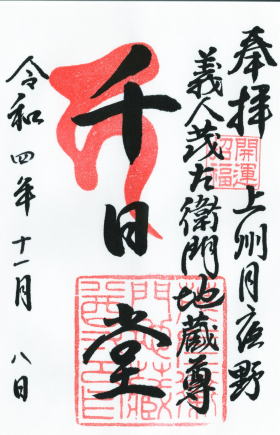 奉拝 上州月夜野
開運
招福
義人茂左衛門地蔵尊
千日堂
令和四年十一月八日